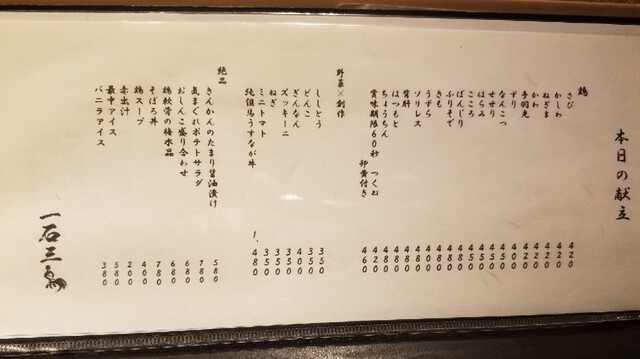 本日の献立
鶏
さび 420
かしわ 420
ねぎま 420
かわ 420
手羽先 420
ずり 400
なんこつ 450
せせり 450
はらみ 480
こころ 450
ぼんじり 450
ふりそで 480
きも 480
うずら 400
ソリレス 480
背肝 480
はつもと 480
ちょうちん 480
賞味期限60秒 つくね 420
卵黄付き 460
野菜×創作
ししとう 350
どんこ 350
ぎんなん 400
ズッキーニ 350
ねぎ 350
ミニトマト 350
純但馬うすなが丼 1,480
絶品
きんかんのたまり醤油漬け 580
気まぐれポテトサラダ 780
おしんこ盛り合わせ 680
鶏軟骨の梅水晶 680
そぼろ丼 780
鶏スープ 400
赤出汁 200
最中アイス 580
バニラアイス 380
一石三